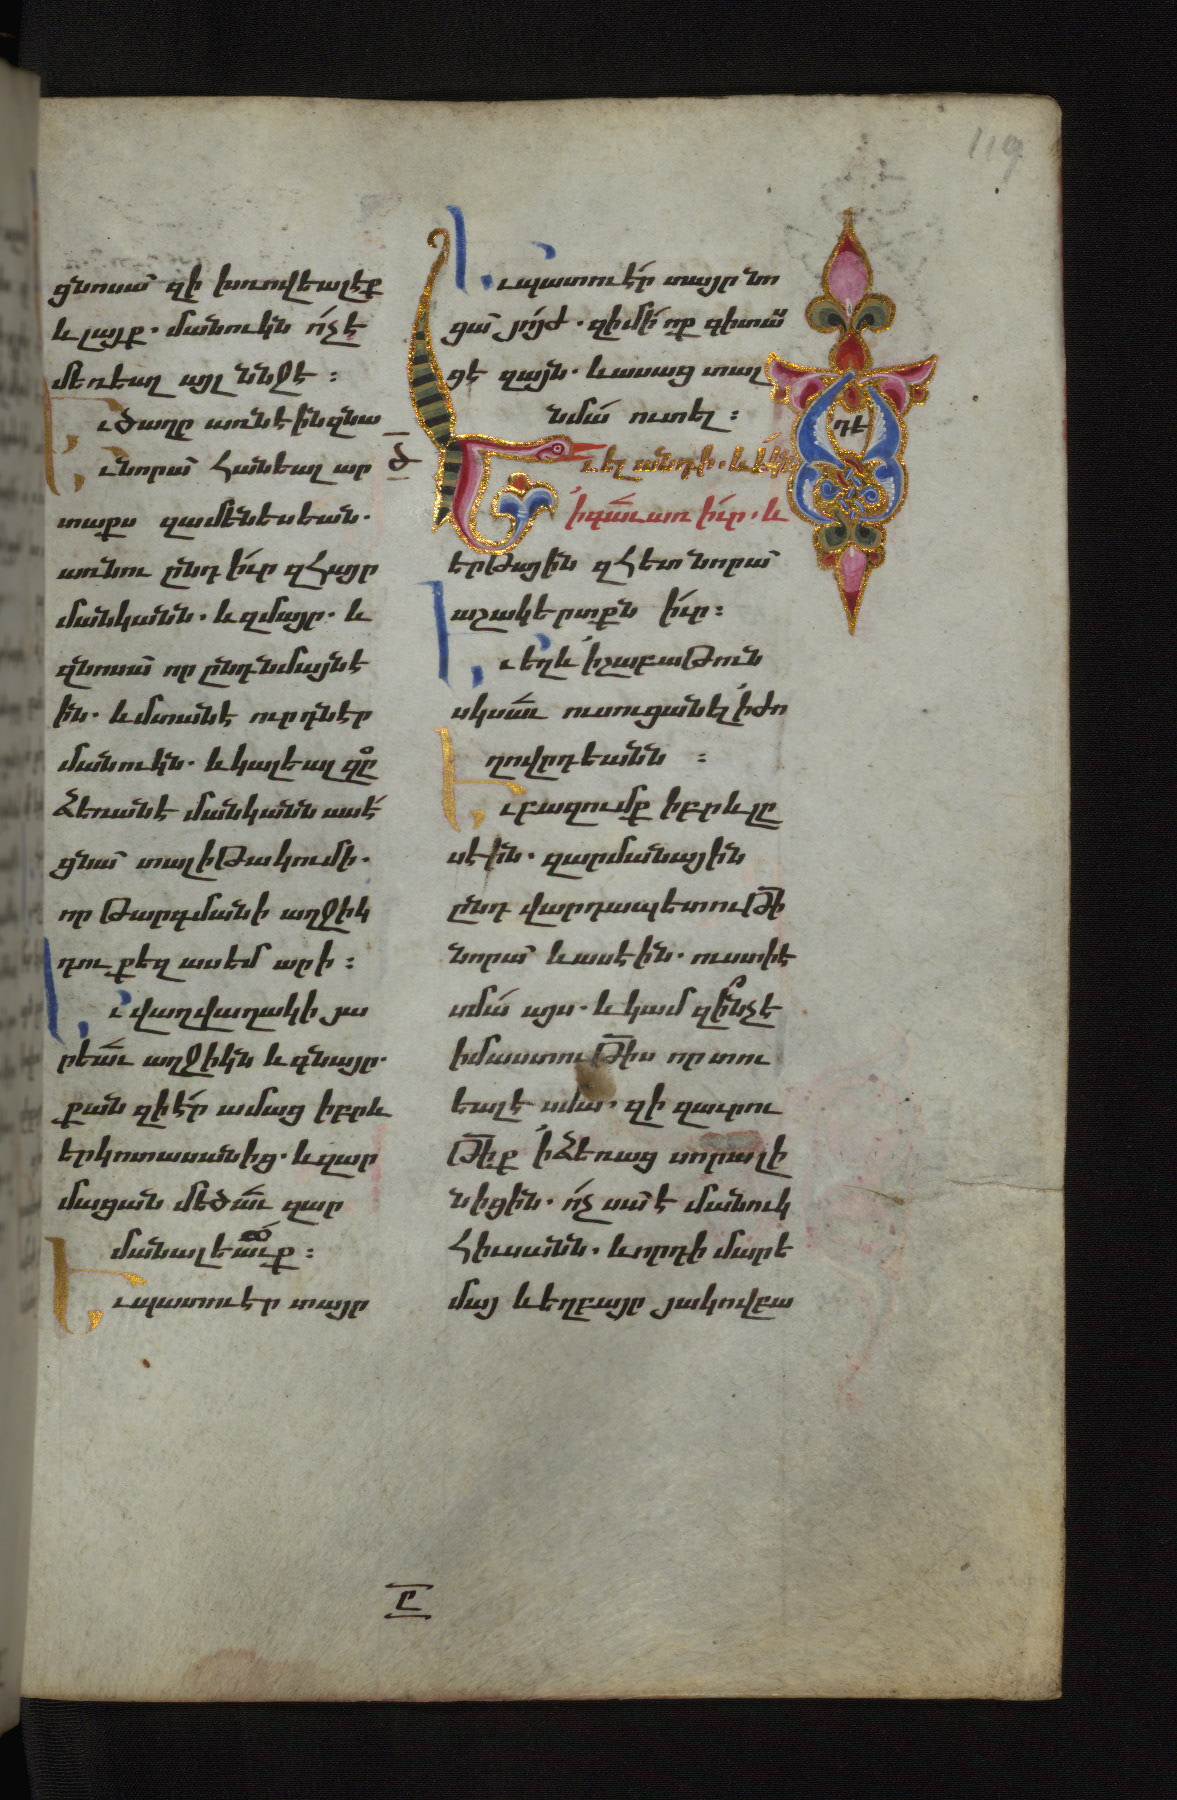 119
ցնոսա՝ զի խռովեալէք
և լայք. մանուկն ո՛չ է
մեռեալ այլ ննջէ :
Եւ ծաղր առնէին զնա
Եւ նորա՝ հանեալ ար
տաքս զամենեսեան.
առնու ընդ իւր զհայր
մանկանն. և զմայր. և
զնոսա՝ որ ընդ նմայն է
ին. և մտանէ ուր դնէր
մանուկն. և կալեալ զը
ձեռանէ մանկանն ասէ՛
ցնա՝ տալիթա կումի.
որ թարգմանի աղջիկ
դու քեզ ասեմ արի :
Եւ վաղվաղակի յա
րեաւ աղջիկն և գնայր.
քան զի է՛ր ամաց իբրև
երկոտասանից. և զար
մացան մեծաւ զար
մանալեաւք :
Եւ պատուէր տայր
Եւ պատուէր տայր նո
ցա՝ յո՛յժ. զի մի՛ ոք գիտաս
ցէ զայն. և ասաց տալ
նմա՛ ուտել :
ծ
Եւ ել անդի. և եկն
ի գաւառ իւր. և
երթային զհետ նորա՝
աշակերտքն իւր :
Եւ եղև ի շաբաթուն
սկսաւ ուսուցանել ի ժո
ղովըրդեանն :
Եւ բազումք իբրև լը
սէին. զարմանային
ընդ վարդապետութի
նորա՝ և ասէին. ուստի է
սմա՛ այս. և կամ զինչ է
իմաստութիս որ տու
եալ է սմա. զի զաւրու
թիք ի ձեռաց սորա լի
նիցին. ո՛չ սա՝ է մանուկ
հիւսանն. և որդի մարե
մայ և եղբայր յակովբա
ԴԵ
Ը